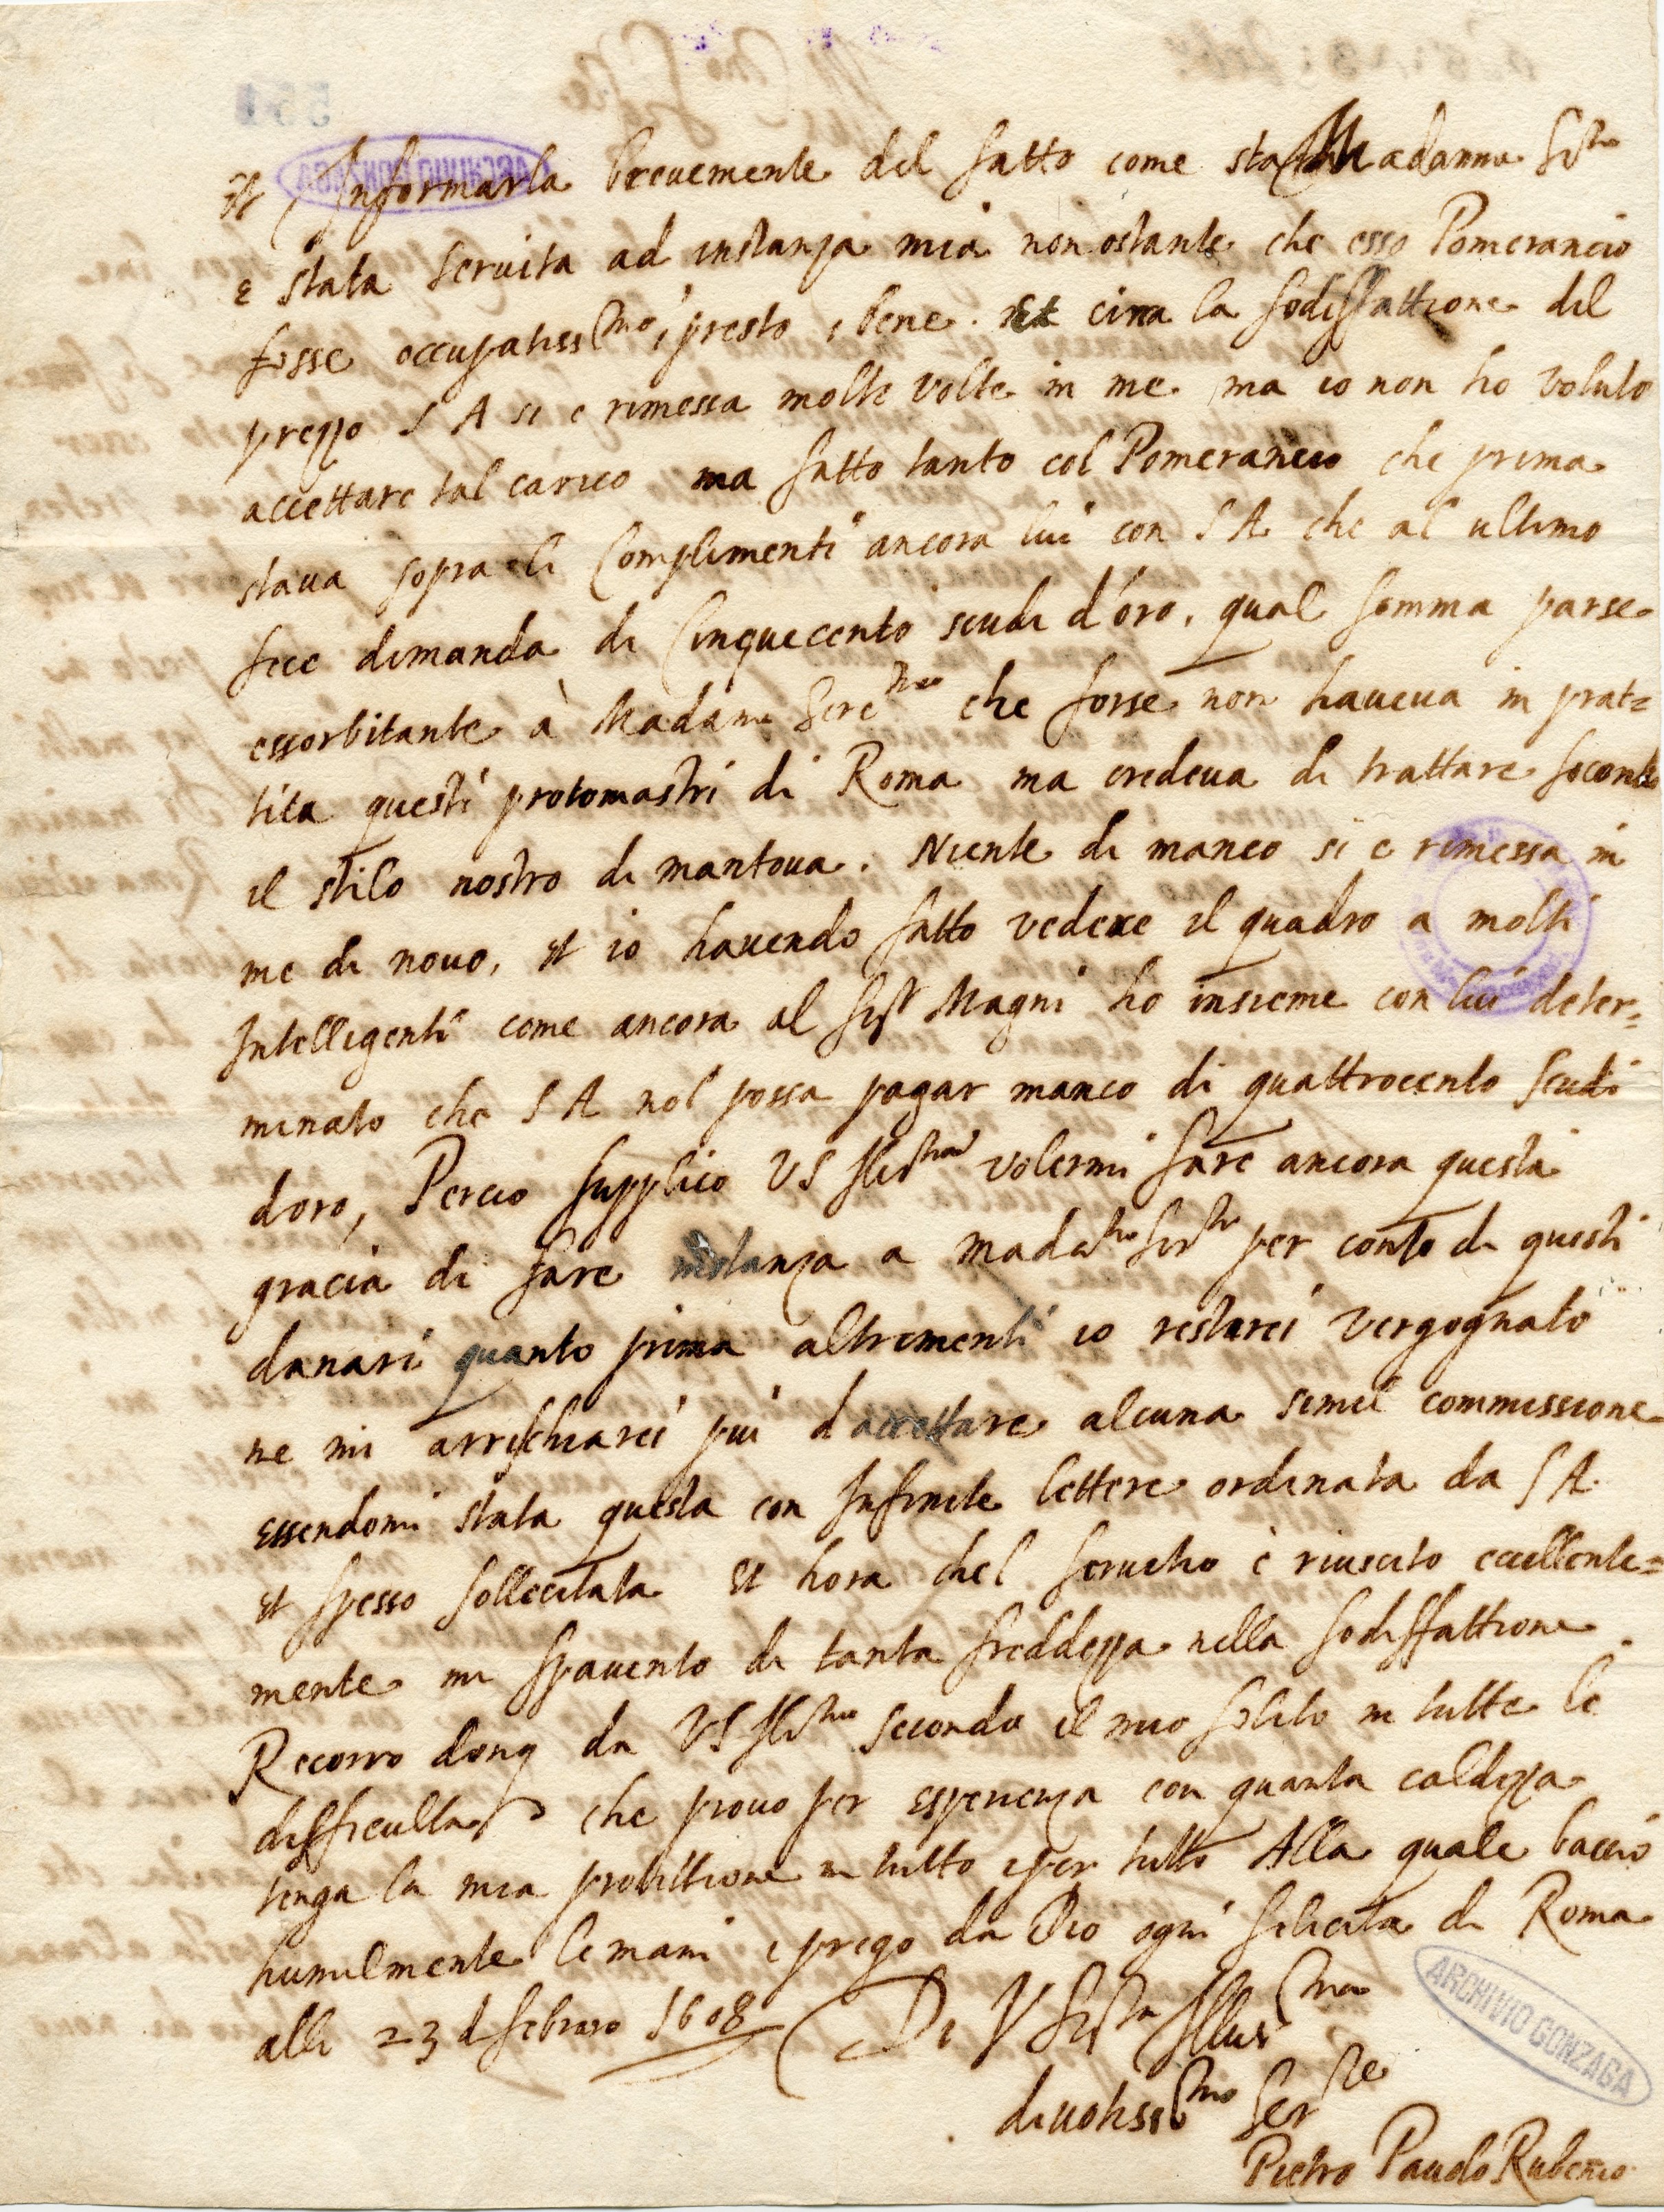 et Informarla brevemente del fatto come sta Madanna Ser.ma
e stata servita ad instanza mia non ostante che esso Pomerancio
fosse occupatiss.mo, presto e bene. Et circa la sodisfattione del
prezzo S A si e rimessa molte volte in me ma io non ho voluto
accettare tal carico ma fatto tanto col Pomerancio che prima
stava sopra li Complimenti ancora lui con S A che al ultimo
fece dimanda di Cinquecento scudi d'oro, qual somma parse
essorbitante à Madama Sere.ma che forse non haveva in prat=
tica questi protomastri di Roma ma credeva di trattare secondo
il stilo nostro di mantova. Niente di manco si e rimessa in
me di novo, et io havendo fatto vedere il quadro a molti
Intelligenti come ancora al Sig.r Magni ho insieme con lui deter=
minato che S A nol possa pagar manco di quattrocento scudi
doro, Percio supplico VS Ill.ma volermi fare ancora questa
gracia di fare instanza a mada.ma Ser.ma per conto di questi
danari quanto prima altrimenti io restarei vergognato
ne mi arrischiarei piu d'accettare alcuna simil commissione
essendomi stata questa con Infinite lettere ordinata da S A.
et spesso sollecitata et hora chel servitio è riuscito eccellente=
mente mi spavento di tanta freddezza nella sodisfattione.
Recorro donq da VS Ill.ma secondo il mio solito in tutte le
difficulta che provo per esperienza con quanta caldezza
tenga la mia protettione in tutto e per tutto Alla quale baccio
humilmente le mani e prego da Dio ogni felicita di Roma
alli 23 d febraro 1608 Di V Sig.ria Illus.ma
divotiss.mo Ser.re
Pietro Pauolo Rubenio
ARCHIVIO GONZAGA